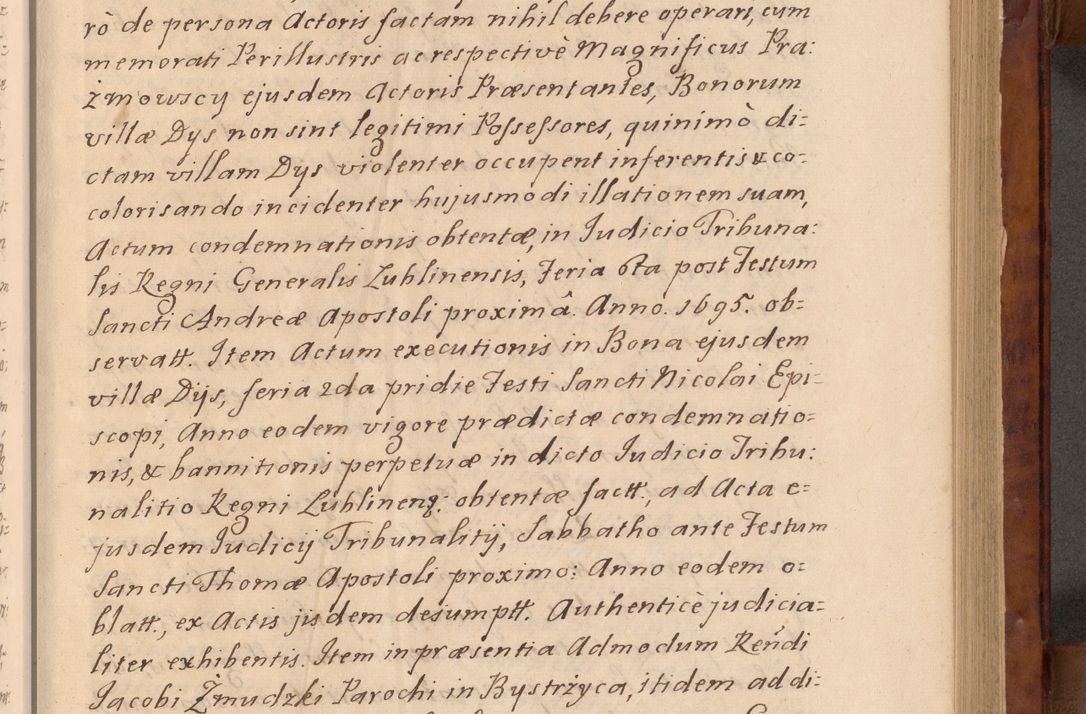 rò de persona Actoris factam nihil debere operari, cum
memorati Perillustris ac respectivè Magnificus Pra:
żmowscy ejusdem Actoris Præsentantes, Bonorum
villæ Dys non sint legitimi Possessores, quinimò di=
ctam villam Dys violenter occupent inferentis & co=
colorisando incidenter hujusmodi illationem suam,
Actum condemnationis obtentæ, in Judicio Tribuna:
lis Regni Generalis Lublinensis, Feria 6ta post Festum
Sancti Andreæ Apostoli proximâ. Anno. 1695. ob=
servatt. Item Actum executionis in Bona ejusdem
villæ Dijs, feria 2da pridie Festi Sancti Nicolai Epi=
scopi, Anno eodem vigore prædictæ condemnatio=
nis, & bannitionis perpetuæ in dicto Judicio Tribu:
nalitio Regni Lublinens: obtentæ factt., ad Acta e=
jusdem Judicij Tribunalitij, Sabbatho ante Festum
Sancti Thomæ Apostoli proximo: Anno eodem o=
blatt., ex Actis jisdem desumptt. Authenticè judicia=
liter exhibentis. Item in præsentia Admodum Rendi
Jacobi Żmudzki Parochi in Bystrżyca, itidem ad di=